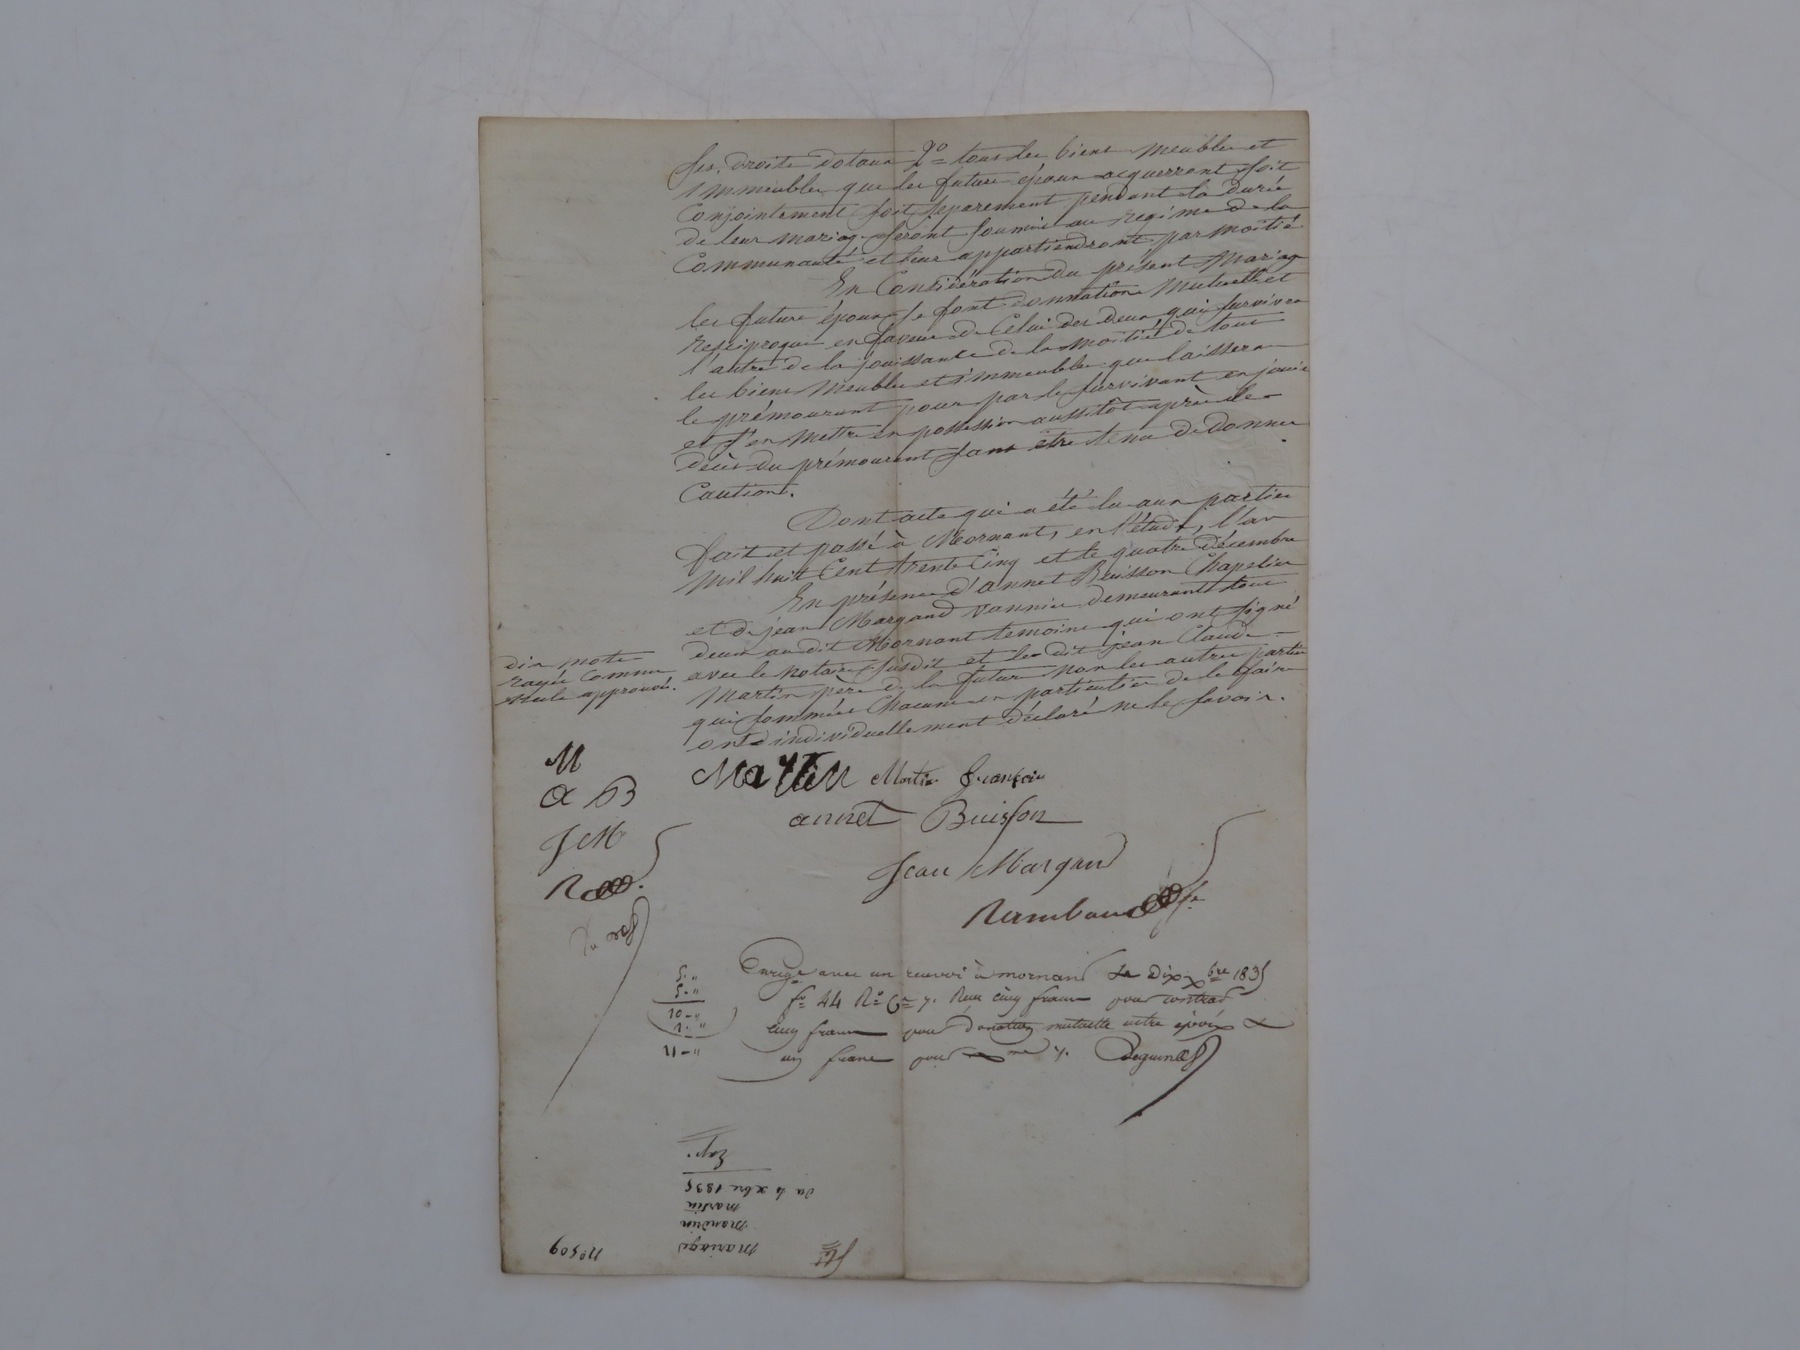 ses droits dotaux 2º tous les biens meubles et
immeubles que les futurs époux acquerront soit
conjointement soit separement pendant la durée
de leur mariage seront soumis au regime de la
communauté et leur appartiendront par moitié
En Considération du présent mariage
les futurs époux se font donnation mutuelle et
reciproque en faveur de celui des deux qui survivra
l'autre de la jouissance de la moitié de tous
les biens meubles et immeubles que laissera
le prémourant pour par le survivant en jouir
et s'en mettre en possession aussitôt après le
décès du prémourant sans être tenu de donner
Caution.
Dont acte qui a été lu aux parties
fait et passé à Mornant, en l'étude, l'an
mil huit Cent trente Cinq et le quatre décembre
En présence d'annet Buisson Chapelier
et de jean Margand vannier demeurants tous
deux au dit Mornant temoins qui ont signé
avec le notaire susdit et le dit jean Claude
Martin père de la future non les autres parties
qui sommées chacune en particulier de le faire
ont individuellement déclaré ne le savoir.
dix mots
rayés comme
nuls approuvés.
M
a B
J M
R
Martin Martin françois
annet Buisson
Jean Margand
Rambaud
Enregé avec un renvoi à mornant le Dix Xbre 1835
fº 44 Rº Cse 7. Reçu cinq francs pour contrat
cinq francs pour donation mutuelle entre époux
un franc pour
5 - "
5 - "
10 - "
1 - "
11 - "
nº 509
mariage
mandrin
martin
du 4 xbre 1835
Exp.